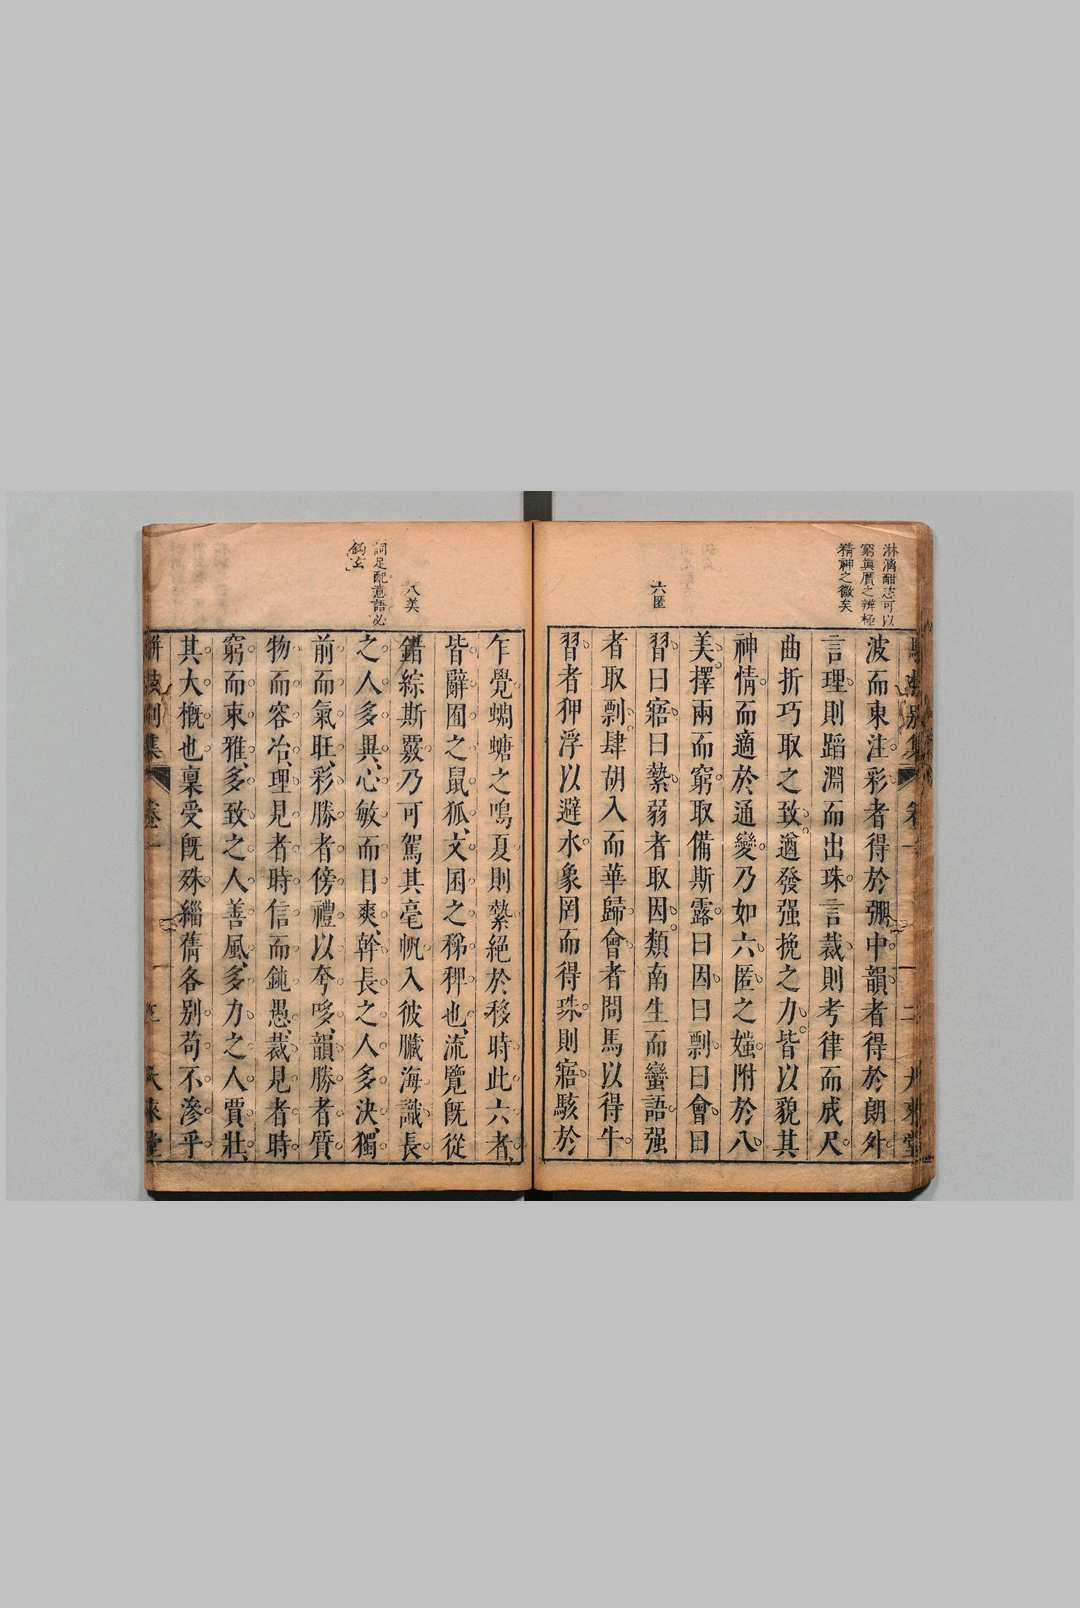 淋漓酣志可以
窮眞贋之辨極
精神之微矣
六匿
波而東注彩者得於弸中韻者得於朗外
言理則蹈淵而出珠言裁則考律而成尺
曲折巧取之致遒發强挽之力皆以貌其
神情而適於通變乃如六匿之媸附於八
美擇兩而窮取備斯露曰因曰剽曰會曰
習曰㝛曰縶弱者取因類南生而蠻語强
者取剽肆胡入而華歸會者問馬以得牛
習者狎浮以避水象罔而得珠則㝛駭於
八美
詞足配意語必
鈎玄
乍覺蜩螗之鳴夏則縶絕於移時此六者
皆辭囿之鼠狐文囷之稊稗也流覽旣從
錯綜斯覈乃可駕其毫帆入彼臟海識長
之人多異心敏而目爽幹長之人多決獨
前而氣旺彩勝者傍禮以夸哆韻勝者質
物而容冶理見者時信而鈍愚裁見者時
窮而束雅多致之人善風多力之人賈壯
其大槪也稟受旣殊緇舊各别苟不滲乎
卷一
大來堂